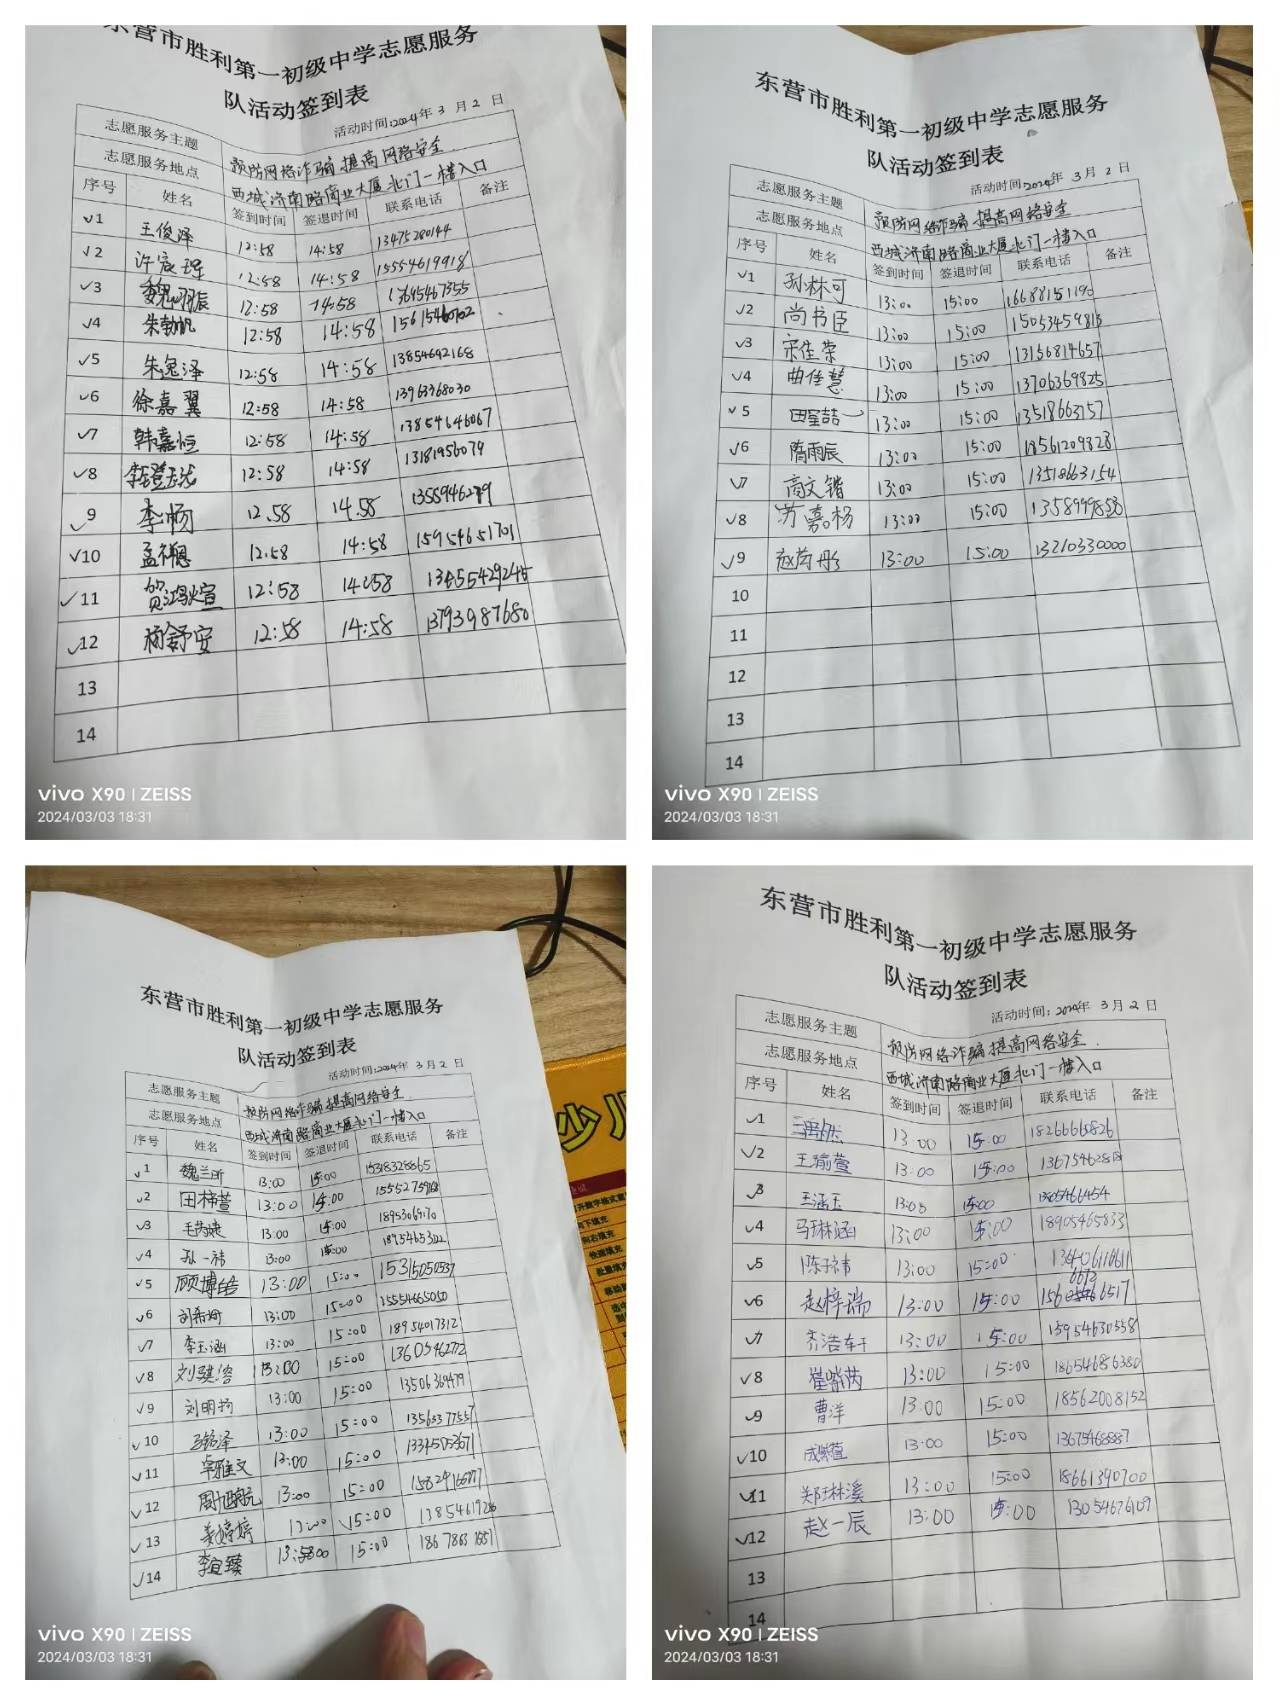 东营市胜利第一初级中学志愿服务
队活动签到表
活动时间:2024年 3 月 2 日
志愿服务主题 预防网络诈骗 提高网络安全
志愿服务地点 西城济南路商业大厦北门一楼入口
序号 姓名 签到时间 签退时间 联系电话 备注
√1 王俊泽 12:58 14:58 13475280144
√2 许宸瑾 12:58 14:58 15554619918
√3 魏翊辰 12:58 14:58 13645467355
√4 朱勃帆 12:58 14:58
√5 朱逸泽 12:58 14:58 13854692168
√6 徐嘉翼 12:58 14:58 13963368030
√7 韩嘉恒 12:58 14:58 13854646067
√8 12:58 14:58 13181956079
√9 李杨 12.58 14.58
√10 12:58 14:58 15954651701
√11 贺鸿煊 12:58 14:58 13455429245
√12 杨舒安 12:58 14:58 13793987680
13
14
vivo X90 | ZEISS
2024/03/03 18:31
东营市胜利第一初级中学志愿服务
队活动签到表
活动时间:2024年 3 月 2 日
志愿服务主题 预防网络诈骗 提高网络安全
志愿服务地点 西城济南路商业大厦北门一楼入口
序号 姓名 签到时间 签退时间 联系电话 备注
√1 孙林可 13:00 15:00 16688151190
√2 尚书臣 13:00 15:00 15053459813
√3 宋佳荣 13:00 15:00 13156814657
√4 曲佳慧 13:00 15:00 13706369825
√5 田星喆 13:00 15:00 13518663157
√6 隋雨辰 13:00 15:00 18561209828
√7 高文锴 13:00 15:00 13518663154
√8 苏嘉杨 13:00 15:00 13589998558
√9 赵芮彤 13:00 15:00 13210330000
10
11
12
13
14
vivo X90 | ZEISS
2024/03/03 18:31
东营市胜利第一初级中学志愿服务
队活动签到表
活动时间:2024年 3 月 2 日
志愿服务主题 预防网络诈骗 提高网络安全
志愿服务地点 西城济南路商业大厦北门一楼入口
序号 姓名 签到时间 签退时间 联系电话 备注
√1 魏兰昕 13:00 15:00 15318328865
√2 田梓萱 13:00 15:00
√3 毛芮婕 13:00 15:00 18953069170
√4 孙一祎 13:00 15:00
√5 顾博皓 13:00 15:00 15315050537
√6 刘希珂 13:00 15:00 15554665050
√7 李玉涵 13:00 15:00 18954017312
√8 刘骐溶 13:00 15:00 13605462772
√9 刘明扬 13:00 15:00 13506369479
√10 13:00 15:00 13563377557
√11 卓雅文 13:00 15:00 13345053671
√12 周旭航 13:00 15:00
√13 姜婷婷 13:00 15:00
√14 李宜臻 15:00
vivo X90 | ZEISS
2024/03/03 18:31
少儿
东营市胜利第一初级中学志愿服务
队活动签到表
活动时间:2024年 3 月 2 日
志愿服务主题 预防网络诈骗 提高网络安全
志愿服务地点 西城济南路商业大厦北门一楼入口
序号 姓名 签到时间 签退时间 联系电话 备注
√1 13:00 15:00 18266660826
√2 王瑜萱 13:00 15:00
√3 王涵玉 13:00 15:00
√4 马琳涵 13:00 15:00 18905465833
√5 陈子祎 13:00 15:00
√6 赵梓瑞 13:00 15:00
√7 齐浩轩 13:00 15:00 15954630558
√8 崔紫芮 13:00 15:00 18654686380
√9 曹洋 13:00 15:00 18562008152
√10 成紫萱 13:00 15:00
√11 郑琳溪 13:00 15:00 18661390700
√12 赵一辰 13:00 15:00 13054676109
13
14
vivo X90 | ZEISS
2024/03/03 18:31